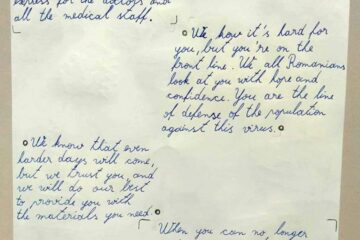 for the doctors and
all the medical staff.
We know it's hard for
you, but you're on the
front line. We all Romanians
look at you with hope and
confidence. You are the line
of defense of the population
against this virus.
We know that even
harder days will come,
but we trust you, and
we will do our best
to provide you with
the materials you need.
When you can no longer